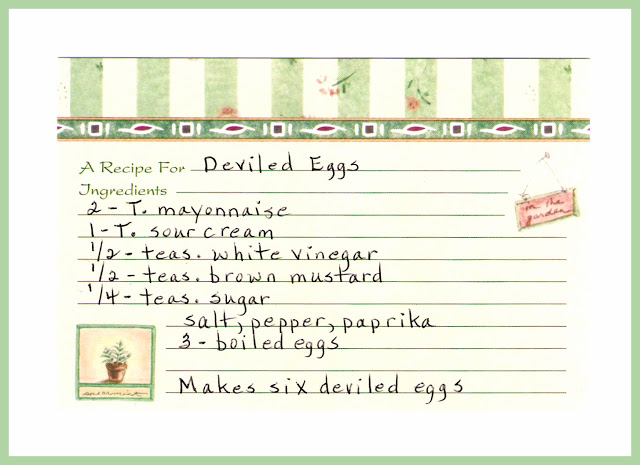 A Recipe For Deviled Eggs
Ingredients
2 - T. mayonnaise
1 - T. sour cream
1/2 - teas. white vinegar
1/2 - teas. brown mustard
1/4 - teas. sugar
salt, pepper, paprika
3 - boiled eggs
Makes six deviled eggs
in the
garden
spearmint